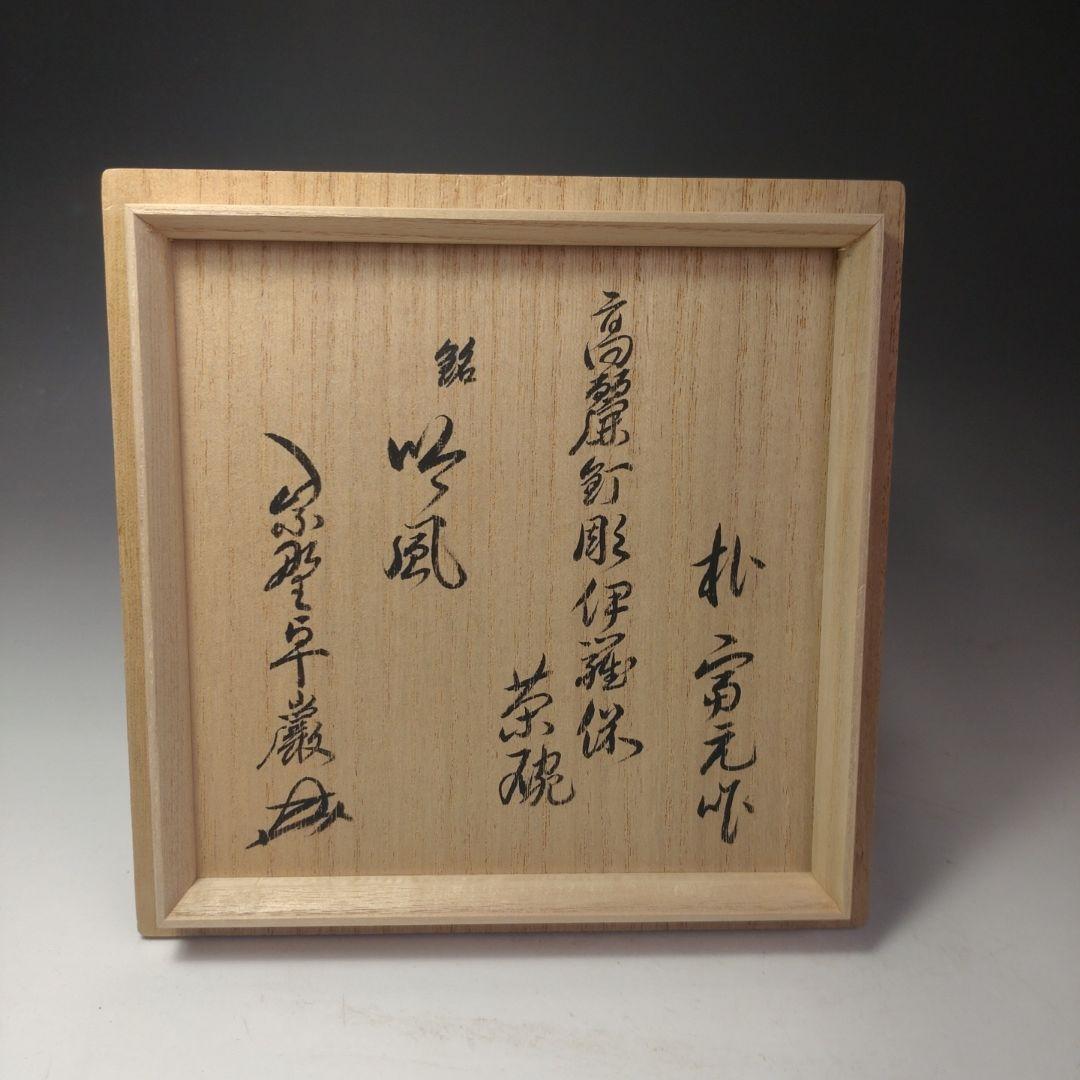 朴 富元作
高麗釘彫伊羅保
茶碗
銘 吟風
紫野卓巌